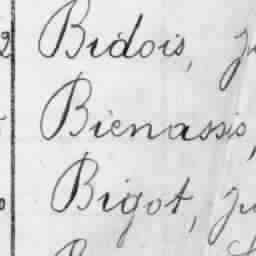 Bidois, ju
Bienassis,
Bigot, ju